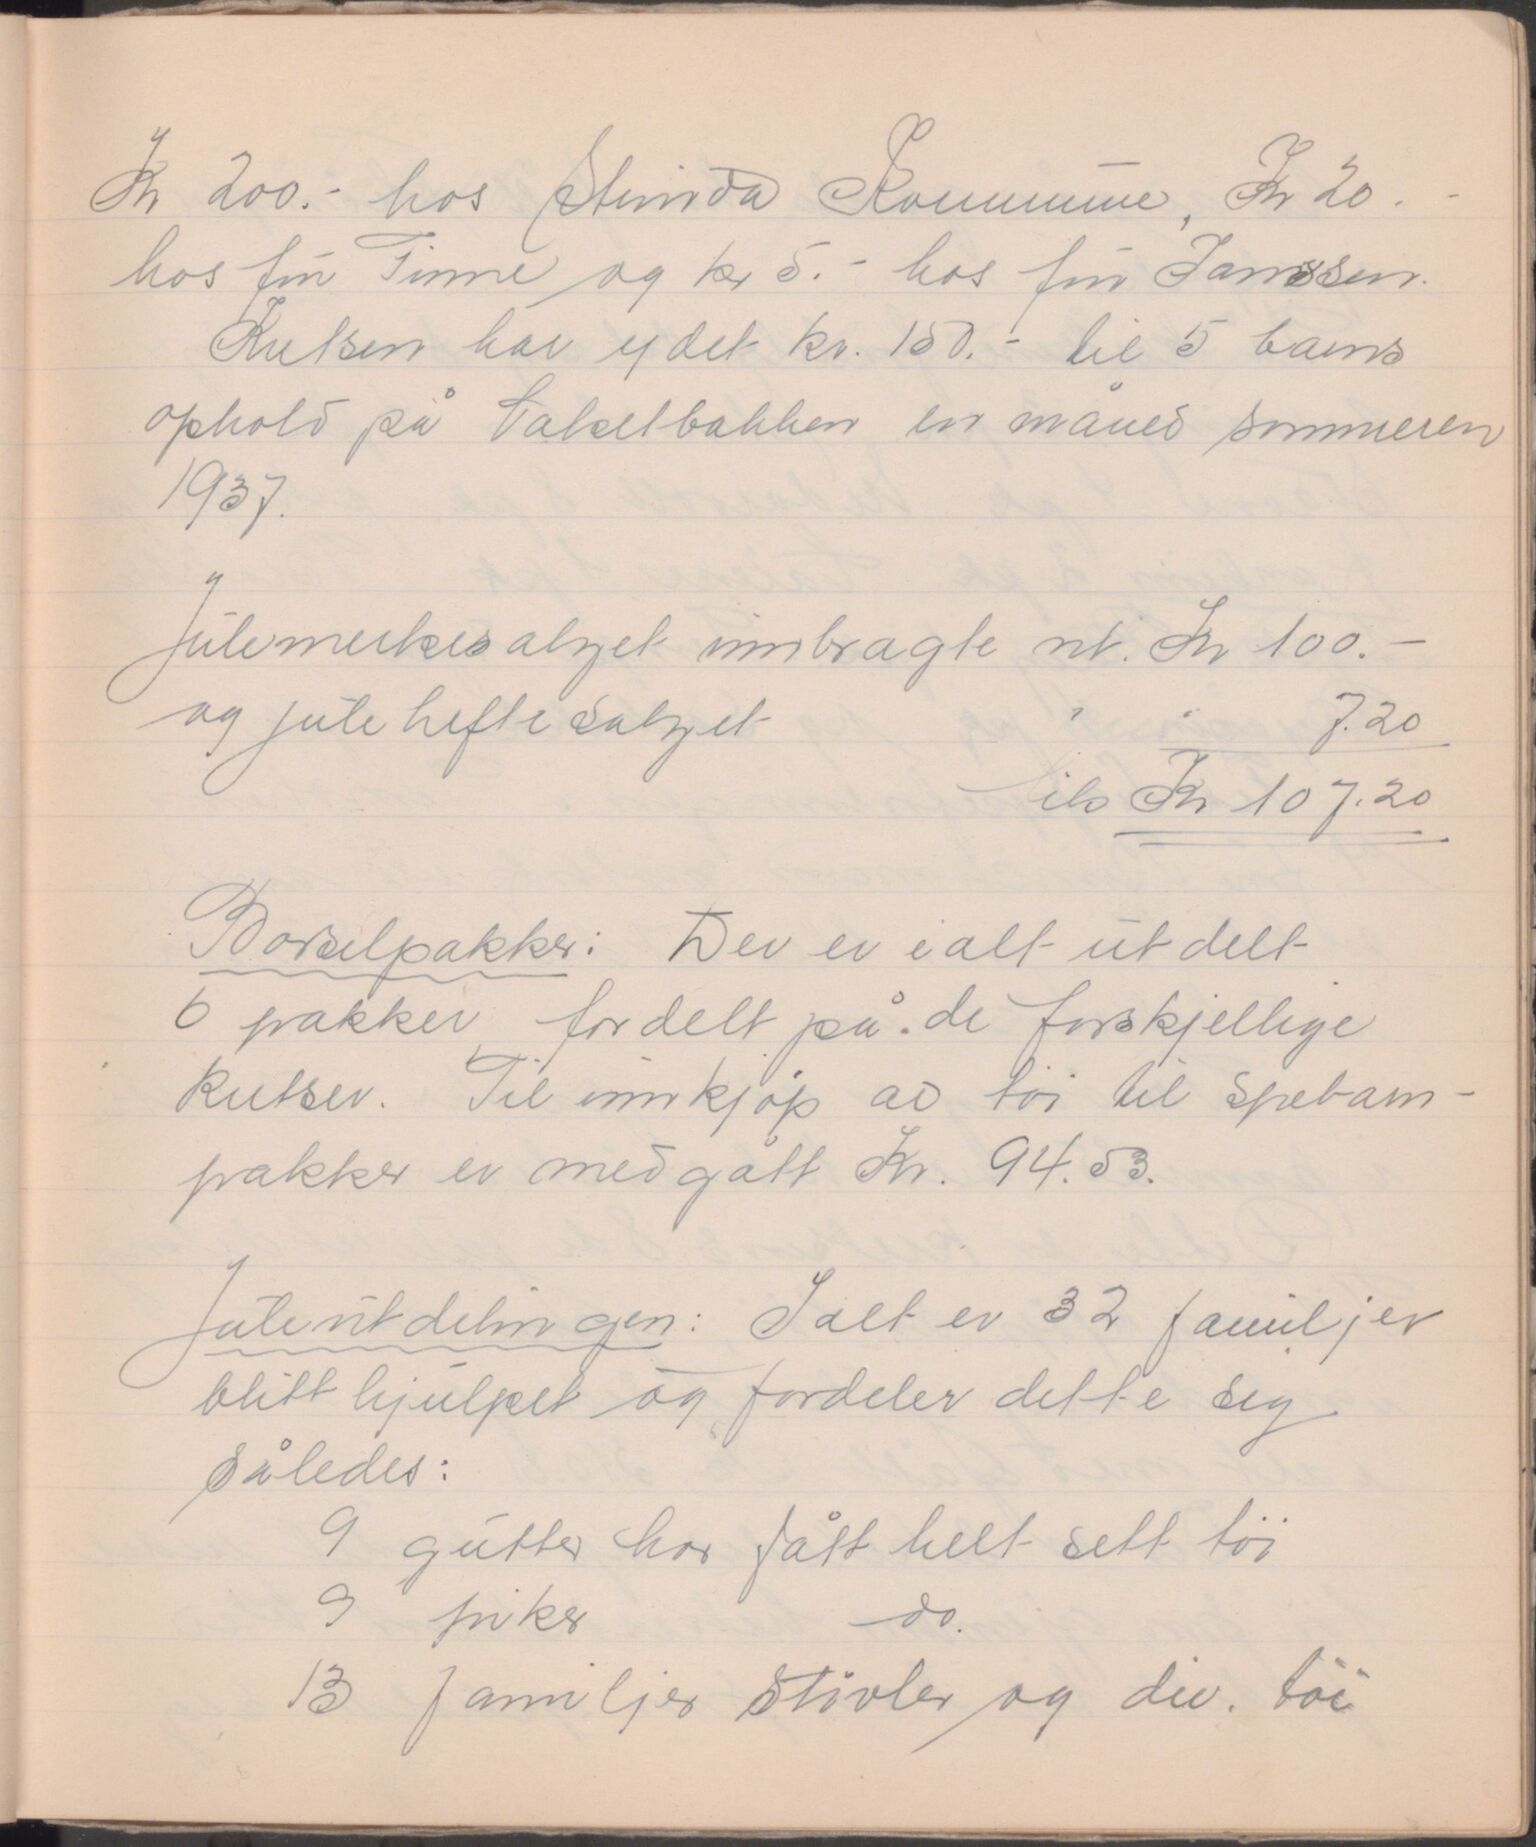 Kr 200.- hos Strinda Kommune, Kr 20.-
hos frú Finne og kr 5.- hos frú Janssen.
Kretsen har ydet kr. 150.- til 5 barns
ophold på bakken en måned sommeren
1937.
Julemerkesalget innbragte nt. Kr 100.-
og julehefte salget " " 7.20
tils Kr 107.20
Barselpakker: Der er ialt utdelt
6 pakker, fordelt på de forskjellige
kretser. Til innkjøp av töi til spebarn-
pakker er medgått Kr. 94.53.
Juleutdelingen: Ialt er 32 familjer
blitt hjulpet og fordeler dette sig
således:
9 gutter har fått helt sett töi
9 piker do.
13 familjer stövler og div. töi